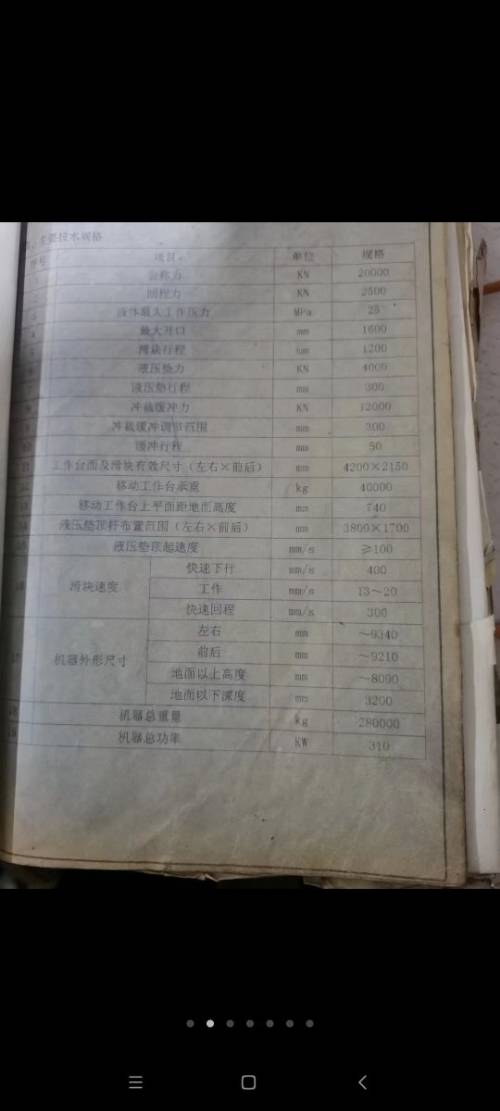 主要技术规格
序号 项目 单位 规格
公称力 KN 20000
回程力 KN 2500
液体最大工作压力 MPa 25
最大开口 mm 1600
滑块行程 mm 1200
液压垫力 KN 4000
液压垫行程 mm 300
冲裁缓冲力 KN 12000
冲裁缓冲调节范围 mm 300
缓冲行程 mm 50
工作台面及滑块有效尺寸（左右×前后） mm 4200×2150
移动工作台承重 kg 40000
移动工作台上平面距地面高度 mm 740
液压垫顶杆布置范围（左右×前后） mm 3800×1700
液压垫顶起速度 mm/s ≥100
滑块速度 快速下行 mm/s 400
工作 mm/s 13～20
快速回程 mm/s 300
机器外形尺寸 左右 mm
前后 mm ～9210
地面以上高度 mm ～8090
地面以下深度 mm 3200
机器总重量 kg 280000
机器总功率 KW 310